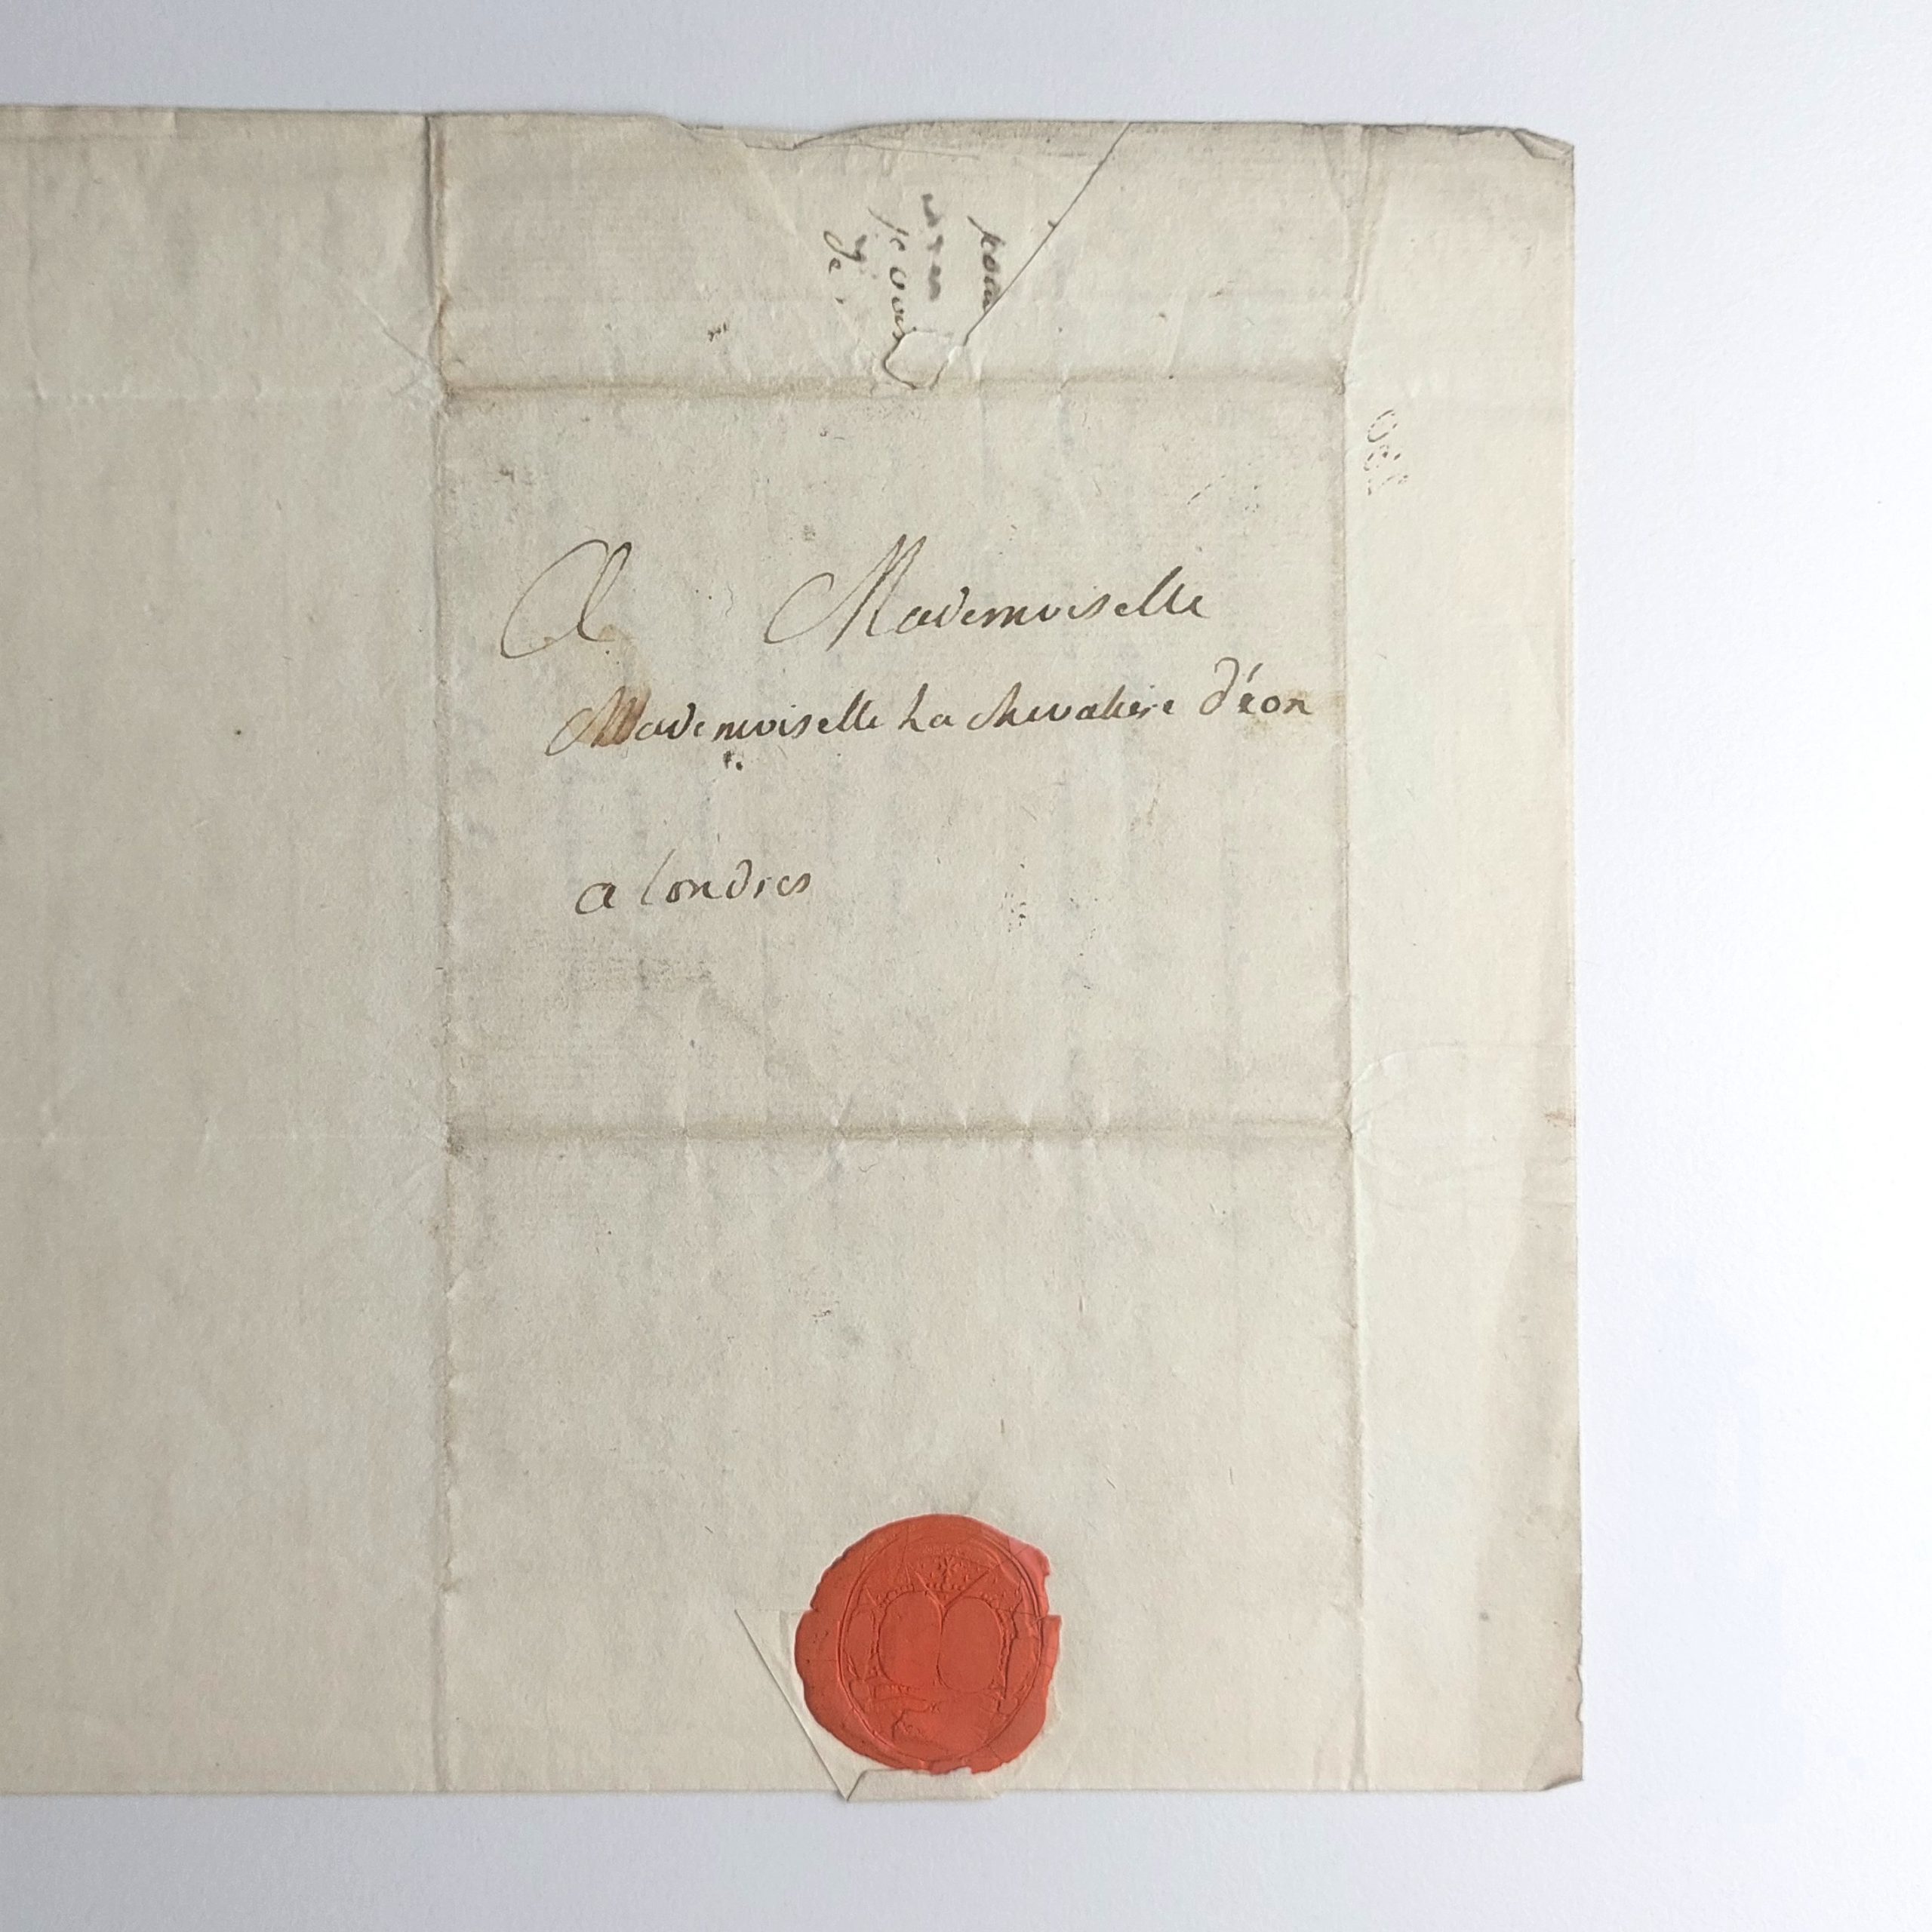 A Mademoiselle
Mademoiselle La chevaliere d'éon
a londres